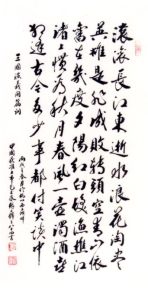 滚滚長江東逝水浪花淘盡
英雄是非成敗轉頭空青山依
舊在幾度夕陽紅白髮漁樵江
渚上慣看秋月春風一壺濁酒喜
相逢古今多少事都付笑談中
三國演義開篇詞